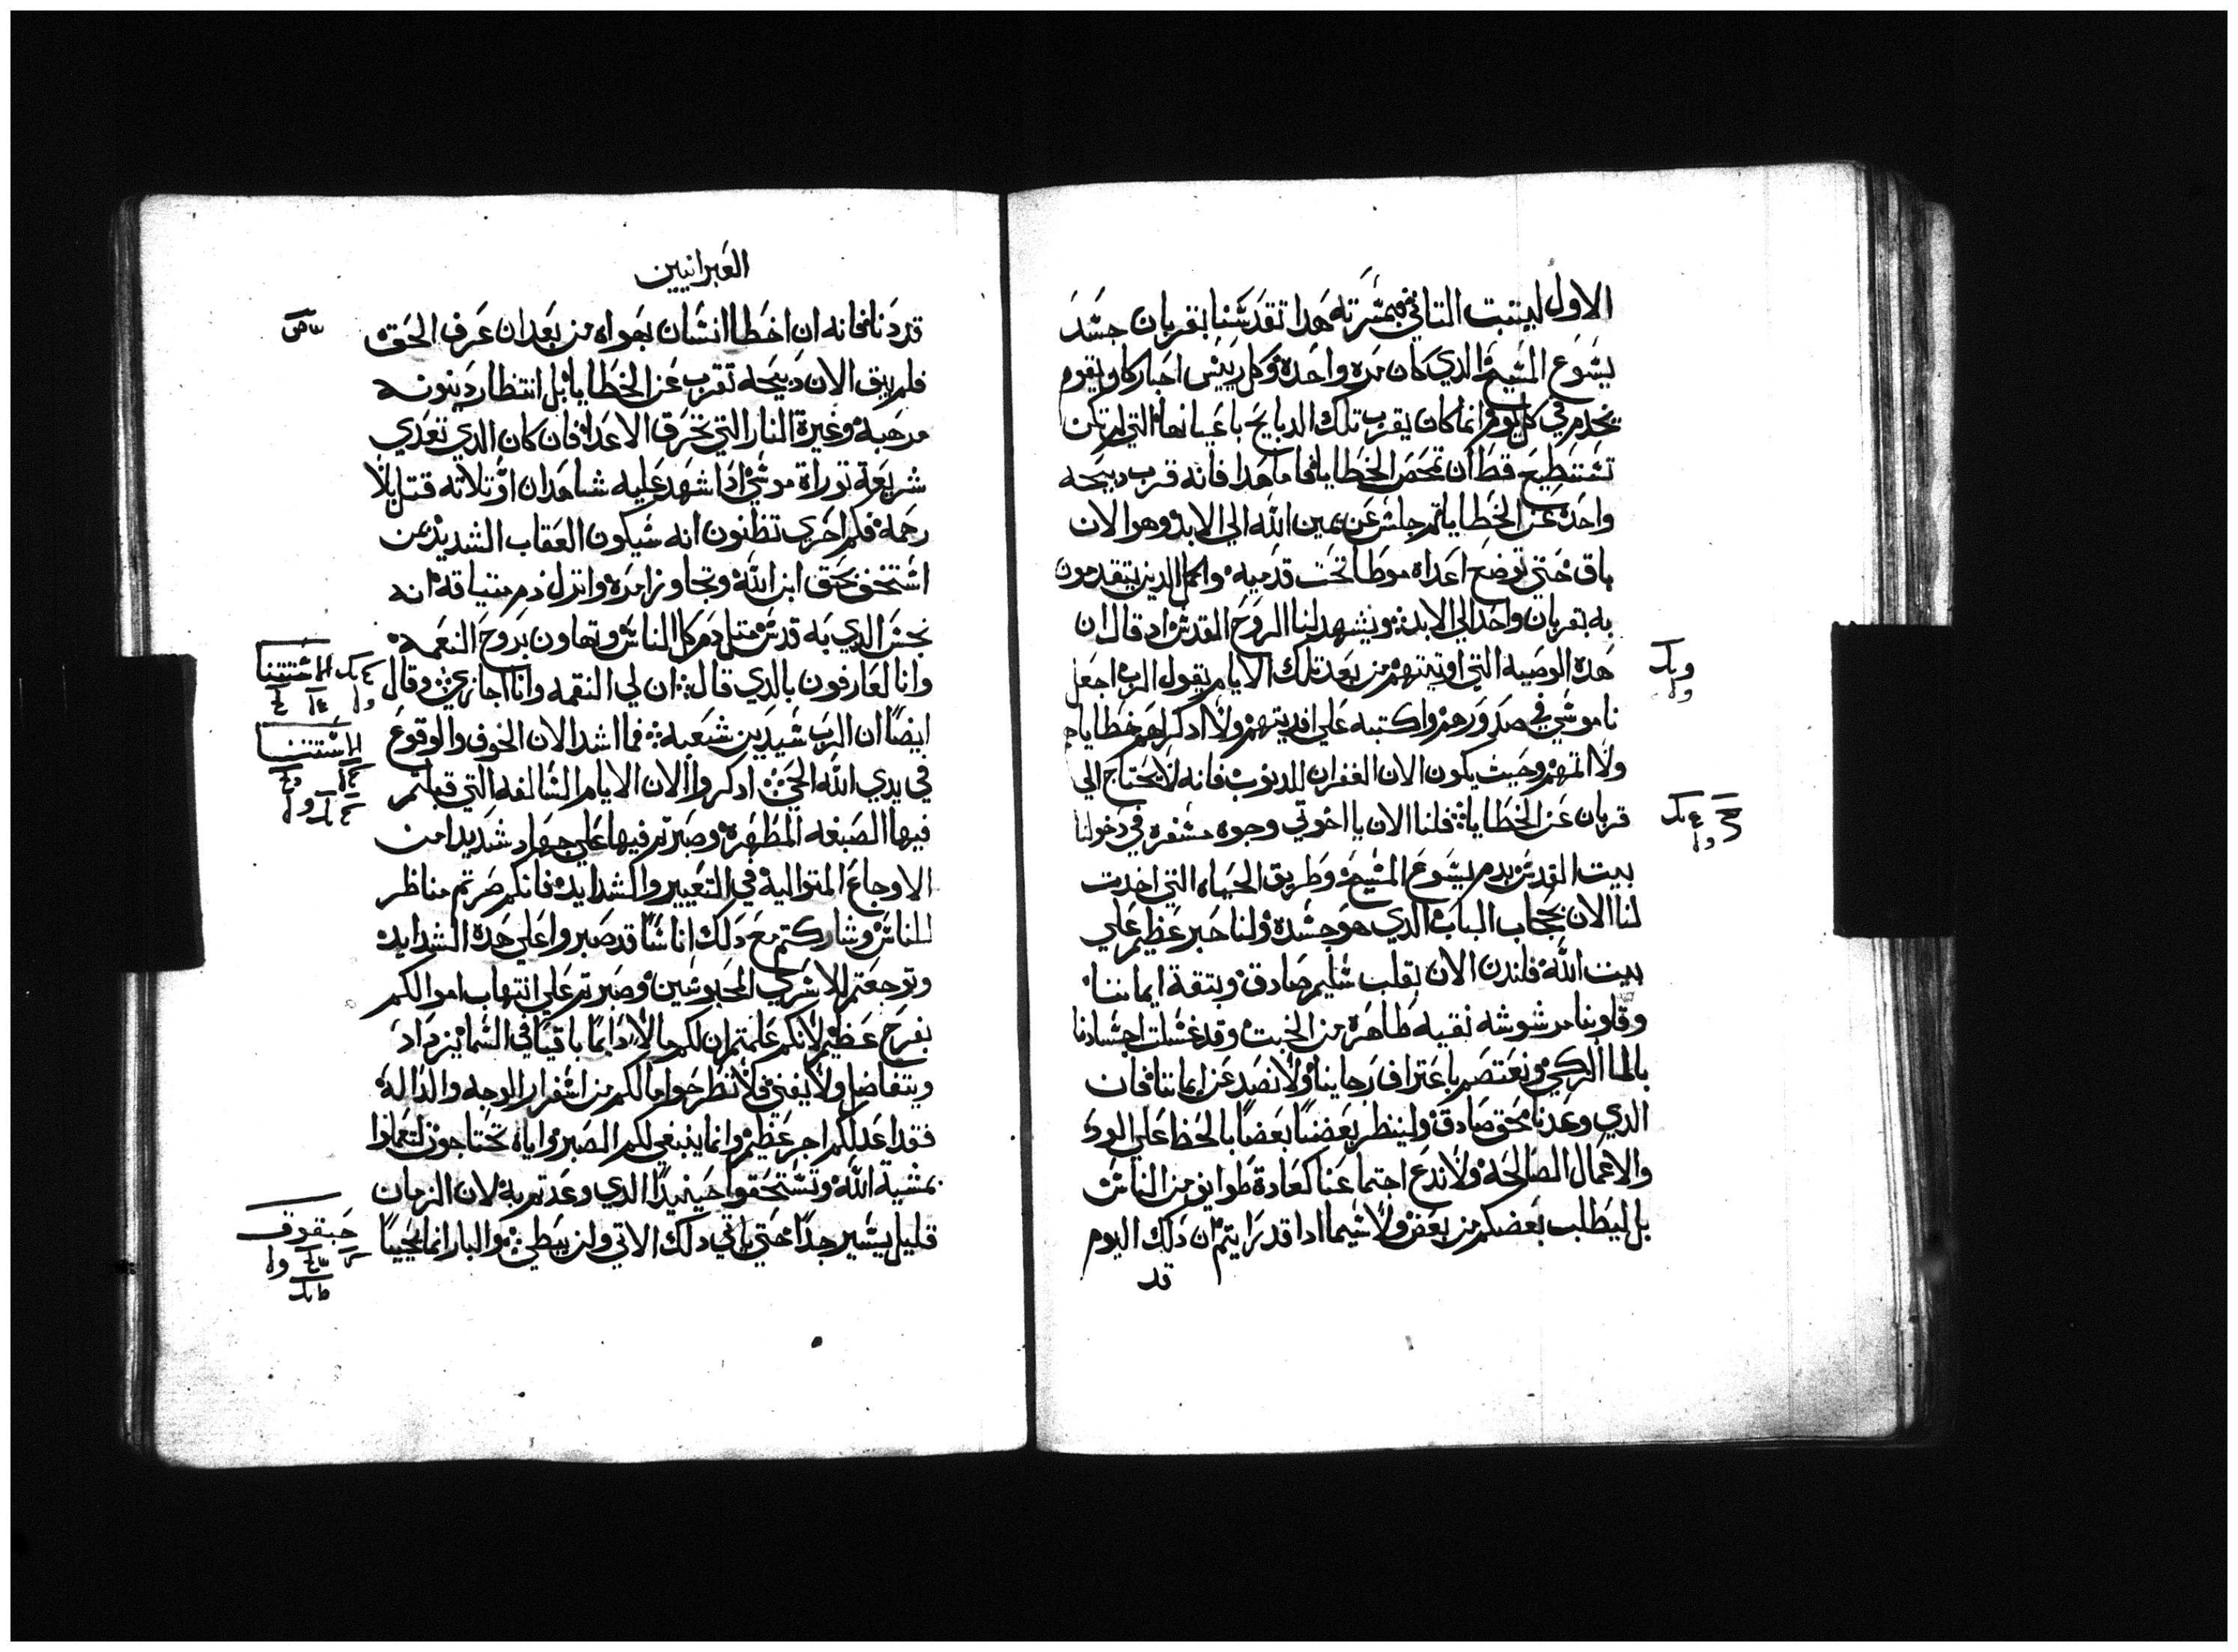 الاول ليتبت التاني فبمشرته هدا تقدشنا بقربان جشد
يشوع المشيح الدي كان مره واحده وكل رييش احبار كان يقوم
يخدم في كل يوم انما كان يقرب تلك الدبايح باعيانها التي لم تكن
تشتطيع قط ان تمحص الخطايا فاما هدا فانه قرب دبيحه
واحده عن الخطايا تم جلش عن يمين الله الي الابد وهو الان
باق حتي توضع اعداه موطا تحت قدميه واكمل الدين يتقدمون
به بقربان واحد الي الابد ويشهد لنا الروح القدش اد قال ان
هده الوصيه التي اوتيتهم من بعد تلك الايام يقول الرب اجعل
ناموشي في صدورهم واكتبه علي افديتهم ولا ادكر لهم خطاياهم
ولا اتمهم وحيث يكون الان الغفران للدنوب فانه لا يحتاج الي
قربان عن الخطايا فلنا الان يا اخوتي وجوه مشفره في دخولنا
بيت القدش بدم يشوع المشيح وطريق الحياه التي اخدت
لنا الان بحجاب الباب الدي هو جشده ولنا حبر عظيم علي
بيت الله فلندن الان بقلب شليم صادق وبتقة ايماننا
وقلوبنا مرشوشه نقيه طاهره من الخبت وقد غشلت اجشادنا
بالما الزكي ونعتصم باعتراف رجاينا ولا نصد عن ايماننا فان
الدي وعدنا محق صادق ولينظر بعضنا بعضا بالحظ علي الود
والاعمال الصالحه ولا ندع اجتماعنا كعادة طوايف من الناش
بل ليطلب بعضكم من بعض ولا شيما ادا قد رايتم ان دلك اليوم
قد
العبرانيين
قد دنا فانه ان اخطا انشان بهواه من بعد ان عرف الحق
فلم يبق الان دبيحه تقرب عن الخطايا بل انتظار دينونه
مرهبة وغيرة النار التي تحرق الاعدا فان كان الدي تعدي
شريعة توراة موشي ادا شهد عليه شاهدان او تلاته قتل بلا
رحمة فكم احري تظنون انه شيكون العقاب الشديد من
اشتخف بحق ابن الله وتجاوز امره وانزل دم ميتاقه انه
نجش الدي به قدش متل دم كل الناش وتهاون بروح النعمه
وانا لعارفون بالدي قال ان لي النقمه وانا اجازي وقال
ايضا ان الرب شيدين شعبه فما اشد الان الخوف والوقوع
في يدي الله الحي ادكروا الان الايام الشالفه التي قبلتم
فيها الصبغه المطهره وصبرتم فيها علي جهاد شديد من
الاوجاع المتواليه في التعيير والشدايد فانكم صرتم مناظر
للناش وشاركتم مع دلك اناشا قد صبروا علي هده الشدايد
وتوجعتم للاشري المحبوشين وصبرتم علي انتهاب اموالكم
بفرح عظيم لانكم علمتم ان لكم مالا دايما باقيا في الشما يزداد
ويتفاضل ولا يفني فلا تطرحوا مالكم من اشفرار الوجه والداله
فقد اعد لكم اجر عظيم وانما ينبغي لكم الصبر واياه تحتاجون لتعملوا
بمشية الله وتشتحقوا حينيد الدي وعدتم به لان الزمان
قليل يشير جدا حتي ياتي دلك الاتي ولن يبطي والبار انما يحييا
حبقوق